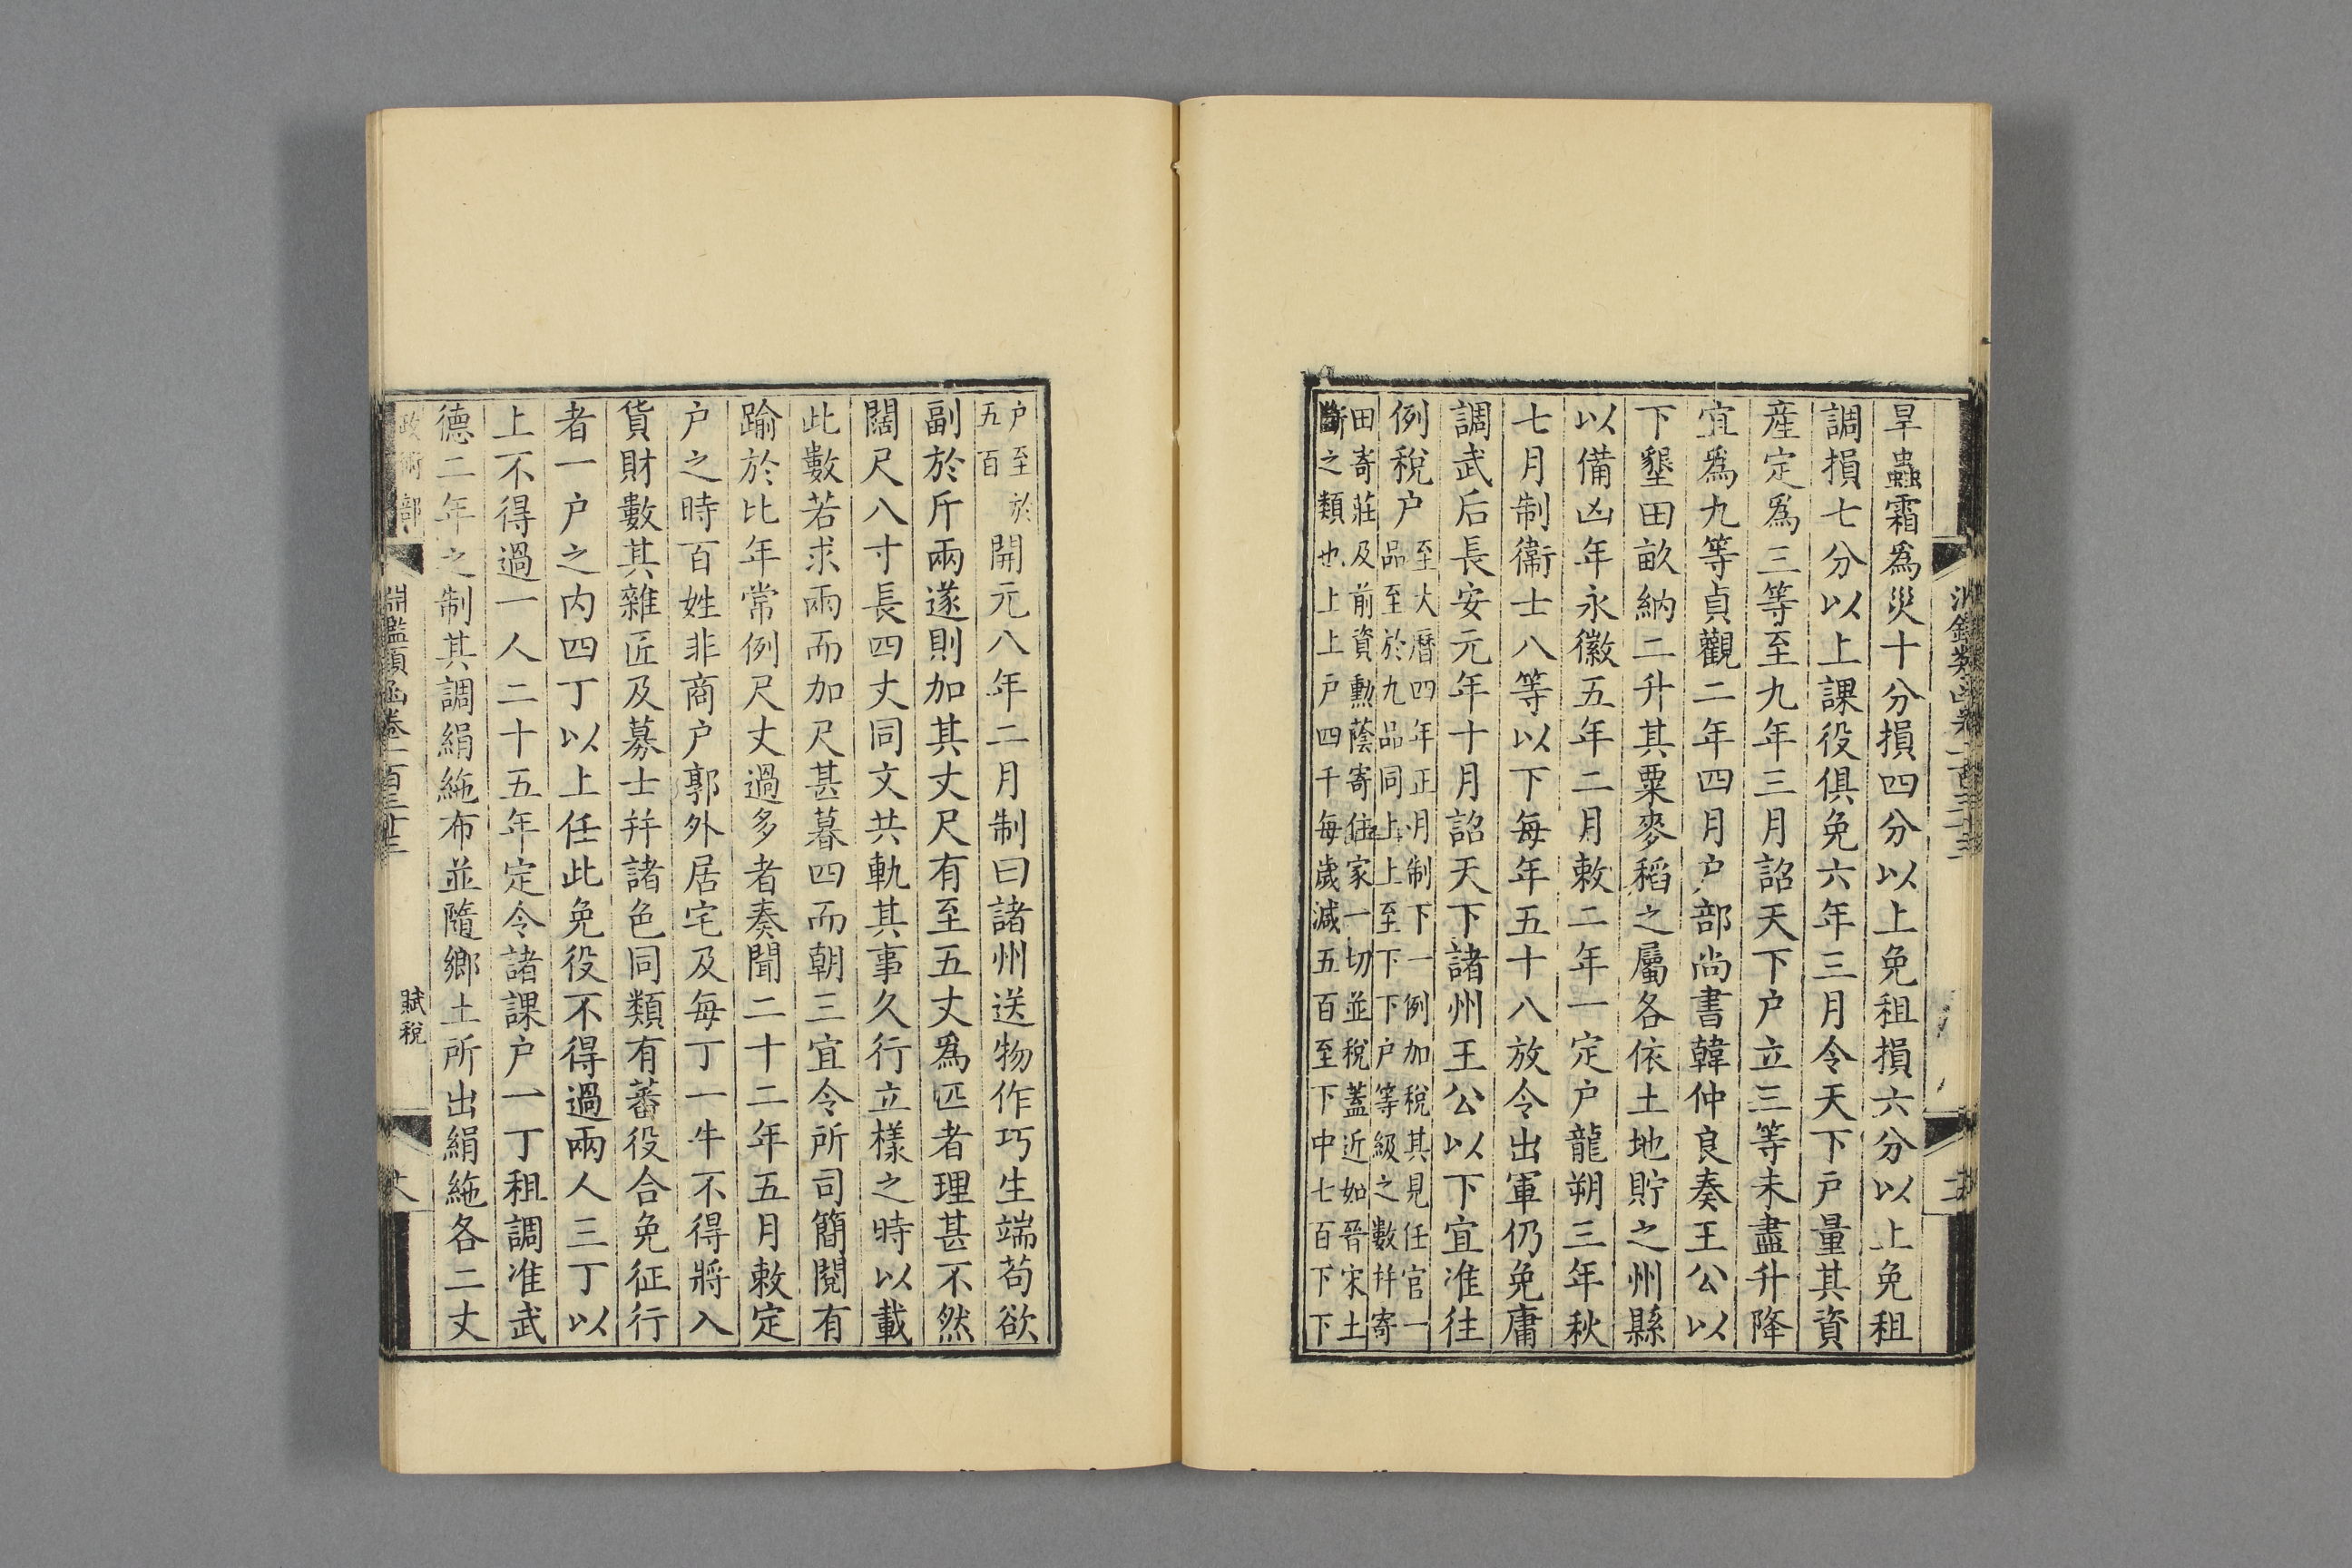 旱蟲霜爲災十分損四分以上免租損六分以上免租
調損七分以上課役俱免六年三月令天下戸量其資
産定爲三等至九年三月詔天下户立三等未盡升降
宜爲九等貞觀二年四月户部尚書韓仲良奏王公以
下墾田畝納二升其粟麥稻之屬各依土地貯之州縣
以備凶年永徽五年二月敕二年一定户龍朔三年秋
七月制衞士八等以下每年五十八放令出軍仍免庸
調武后長安元年十月詔天下諸州王公以下宜准往
例稅户至大曆四年正月制下一例加稅其見任官一
品至於九品同上上至下下户等級之數幷寄
田寄莊及前資勳蔭寄住家一切並稅蓋近如晉宋土
斷之類也上上户四千每歲減五百至下中七百下下
户至於
五百
開元八年二月制曰諸州送物作巧生端苟欲
副於斤兩遂則加其丈尺有至五丈爲匹者理甚不然
闊尺八寸長四丈同文共軌其事久行立樣之時以載
此數若求兩而加尺甚暮四而朝三宜令所司簡閱有
踰於比年常例尺丈過多者奏聞二十二年五月敕定
户之時百姓非商户郭外居宅及每丁一牛不得將入
貨財數其雜匠及募士幷諸色同類有蕃役合免征行
者一户之内四丁以上任此免役不得過兩人三丁以
上不得過一人二十五年定令諸課户一丁租調准武
德二年之制其調絹絁布並隨鄉土所出絹絁各二丈
政術部
淵鑑類函卷一百三十三
賦稅